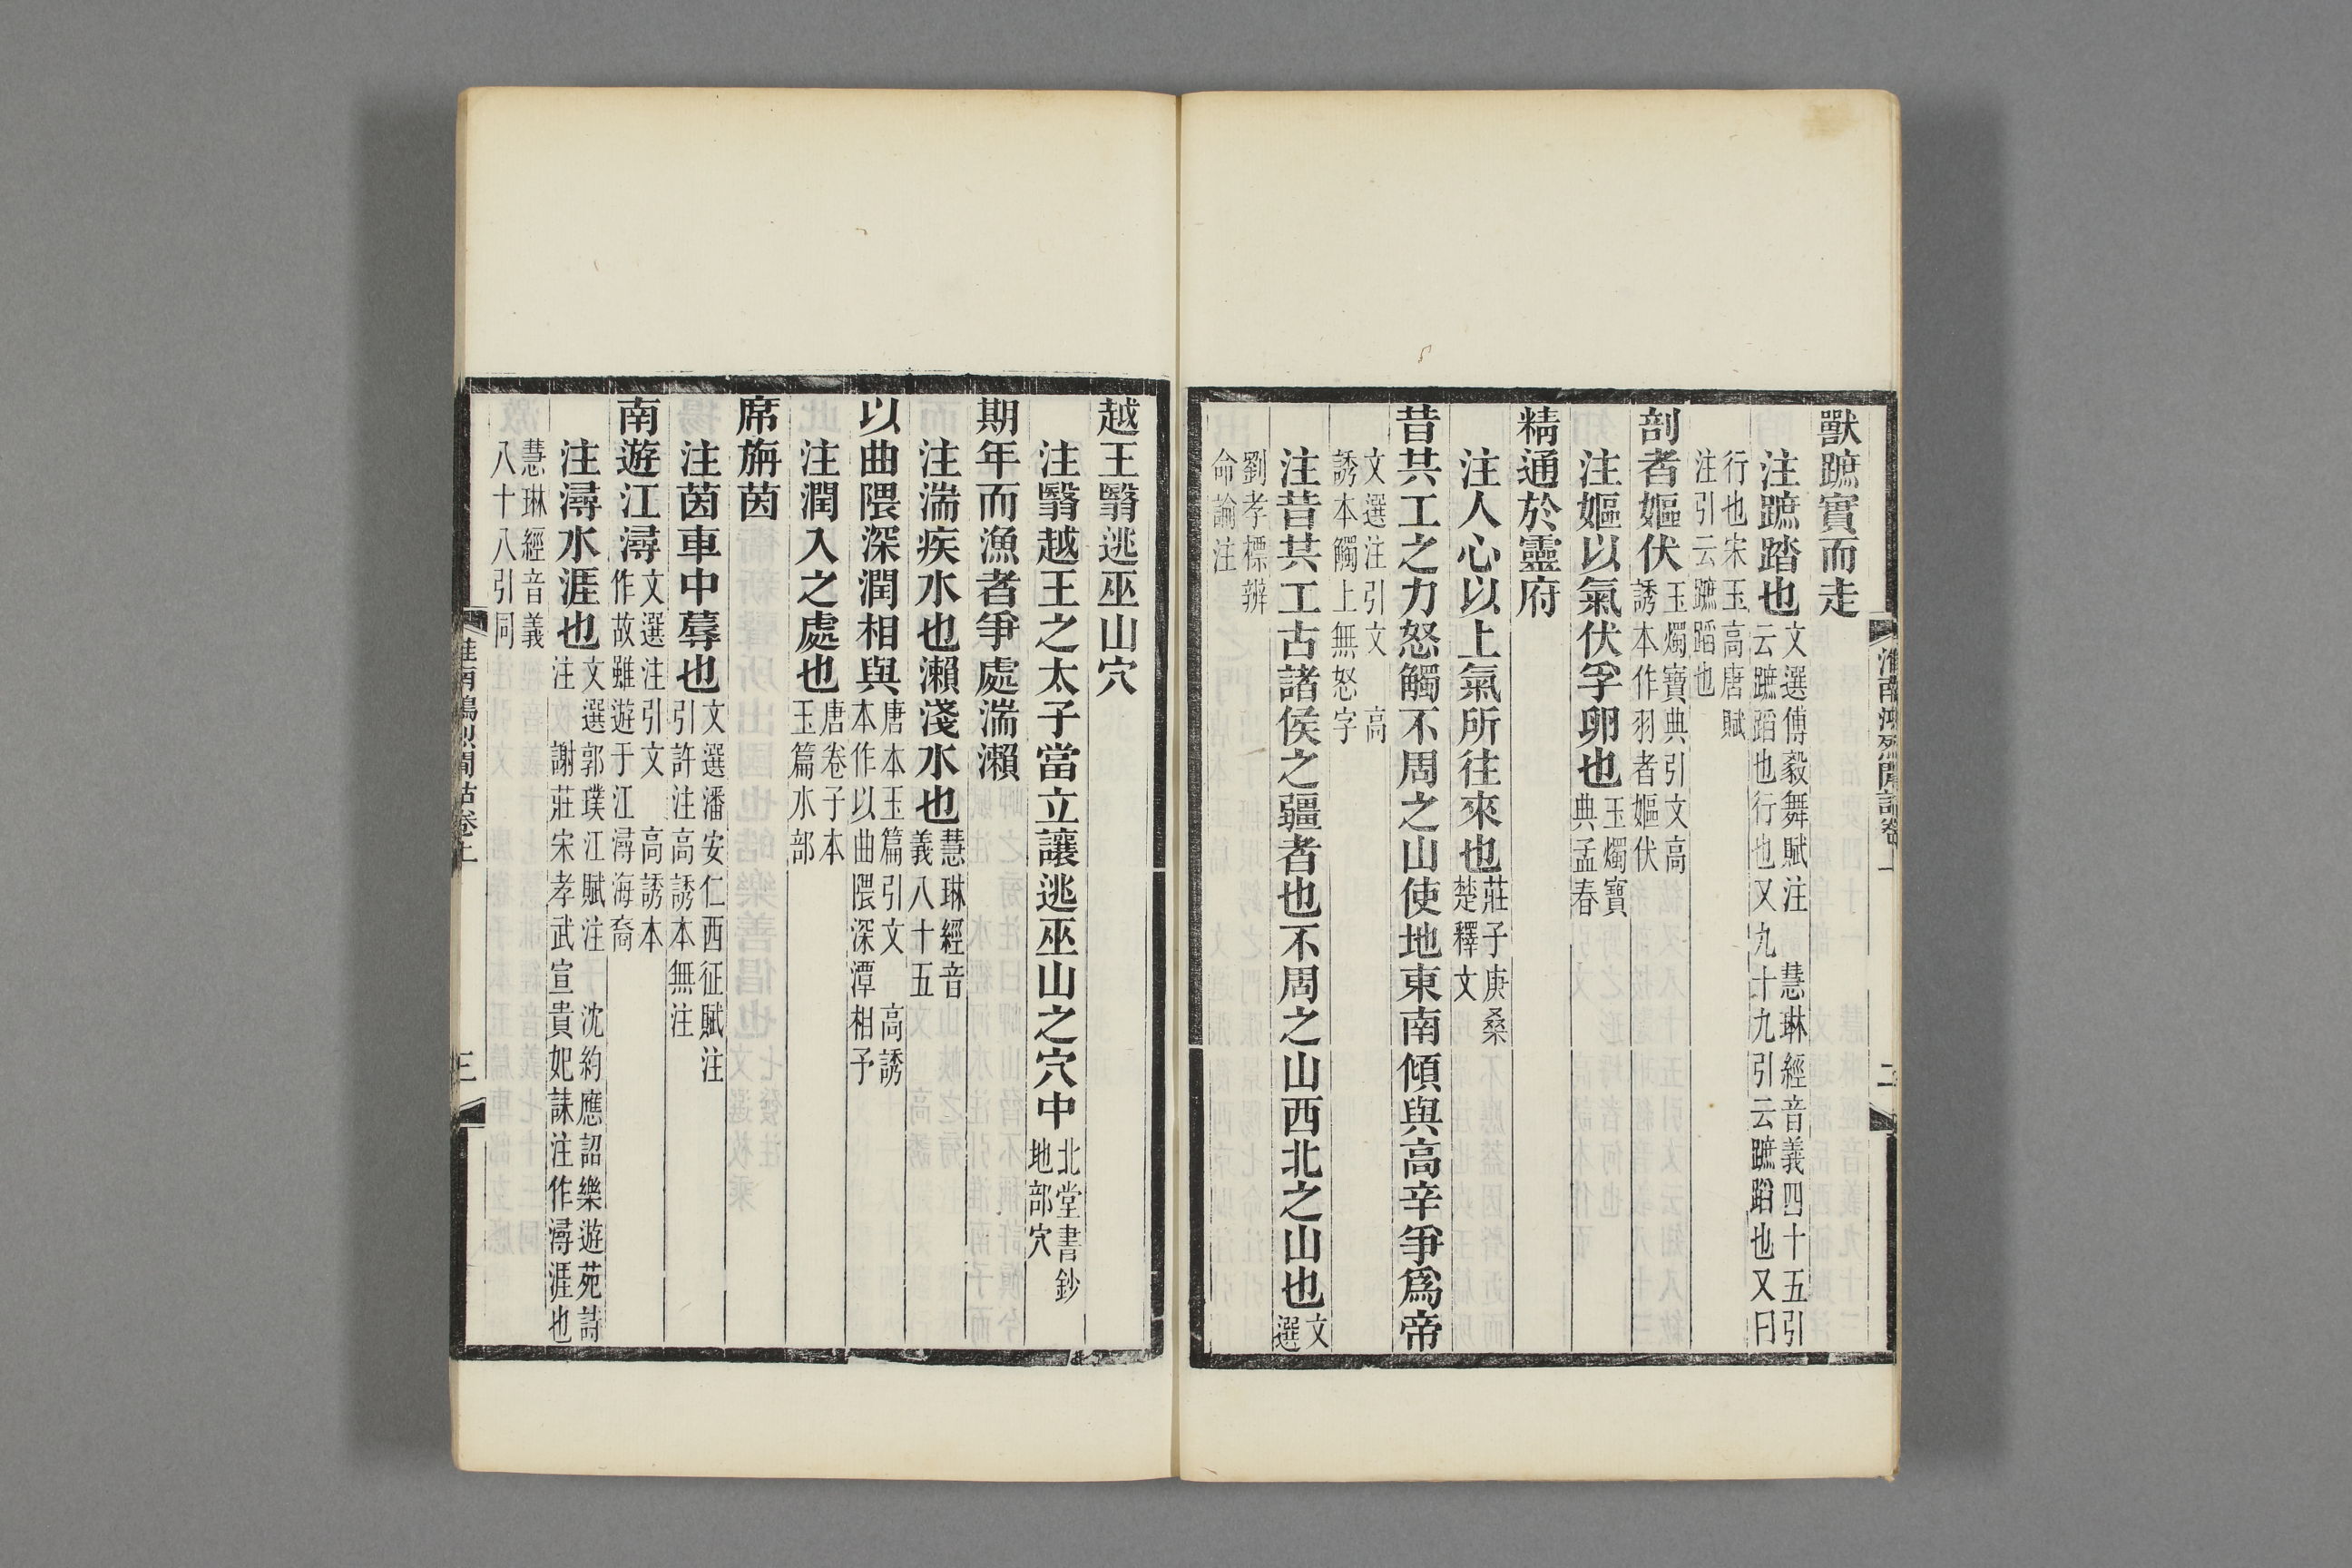 獸蹠實而走
注蹠踏也文選傅毅舞賦注　慧琳經音義四十五引
云蹠蹈也行也又九十九引云蹠蹈也又曰
行也宋玉高唐賦
注引云蹠蹈也
剖者嫗伏玉燭寶典引文高
誘本作羽者嫗伏
注嫗以氣伏孚卵也玉燭寶
典孟春
精通於靈府
注人心以上氣所往來也莊子庚桑
楚釋文
昔共工之力怒觸不周之山使地東南傾與高辛爭爲帝
文選注引文　高
誘本觸上無怒字
注昔共工古諸侯之疆者也不周之山西北之山也文
選
劉孝標辨
命論注
淮南鴻烈閒詁卷上
二
越王翳逃巫山穴
注翳越王之太子當立讓逃巫山之穴中北堂書鈔
地部穴
期年而漁者爭處湍瀨
注湍疾水也瀨淺水也慧琳經音
義八十五
以曲隈深潤相與唐本玉篇引文　高誘
本作以曲隈深潭相予
注潤入之處也唐卷子本
玉篇水部
席旃茵
注茵車中蓐也文選潘安仁西征賦注
引許注高誘本無注
南遊江潯文選注引文　高誘本
作故雖遊于江潯海裔
注潯水涯也文選郭璞江賦注　沈約應詔樂遊苑詩
注　謝莊宋孝武宣貴妃誄注作潯涯也
慧琳經音義
八十八引同
淮南鴻烈閒詁卷上
三